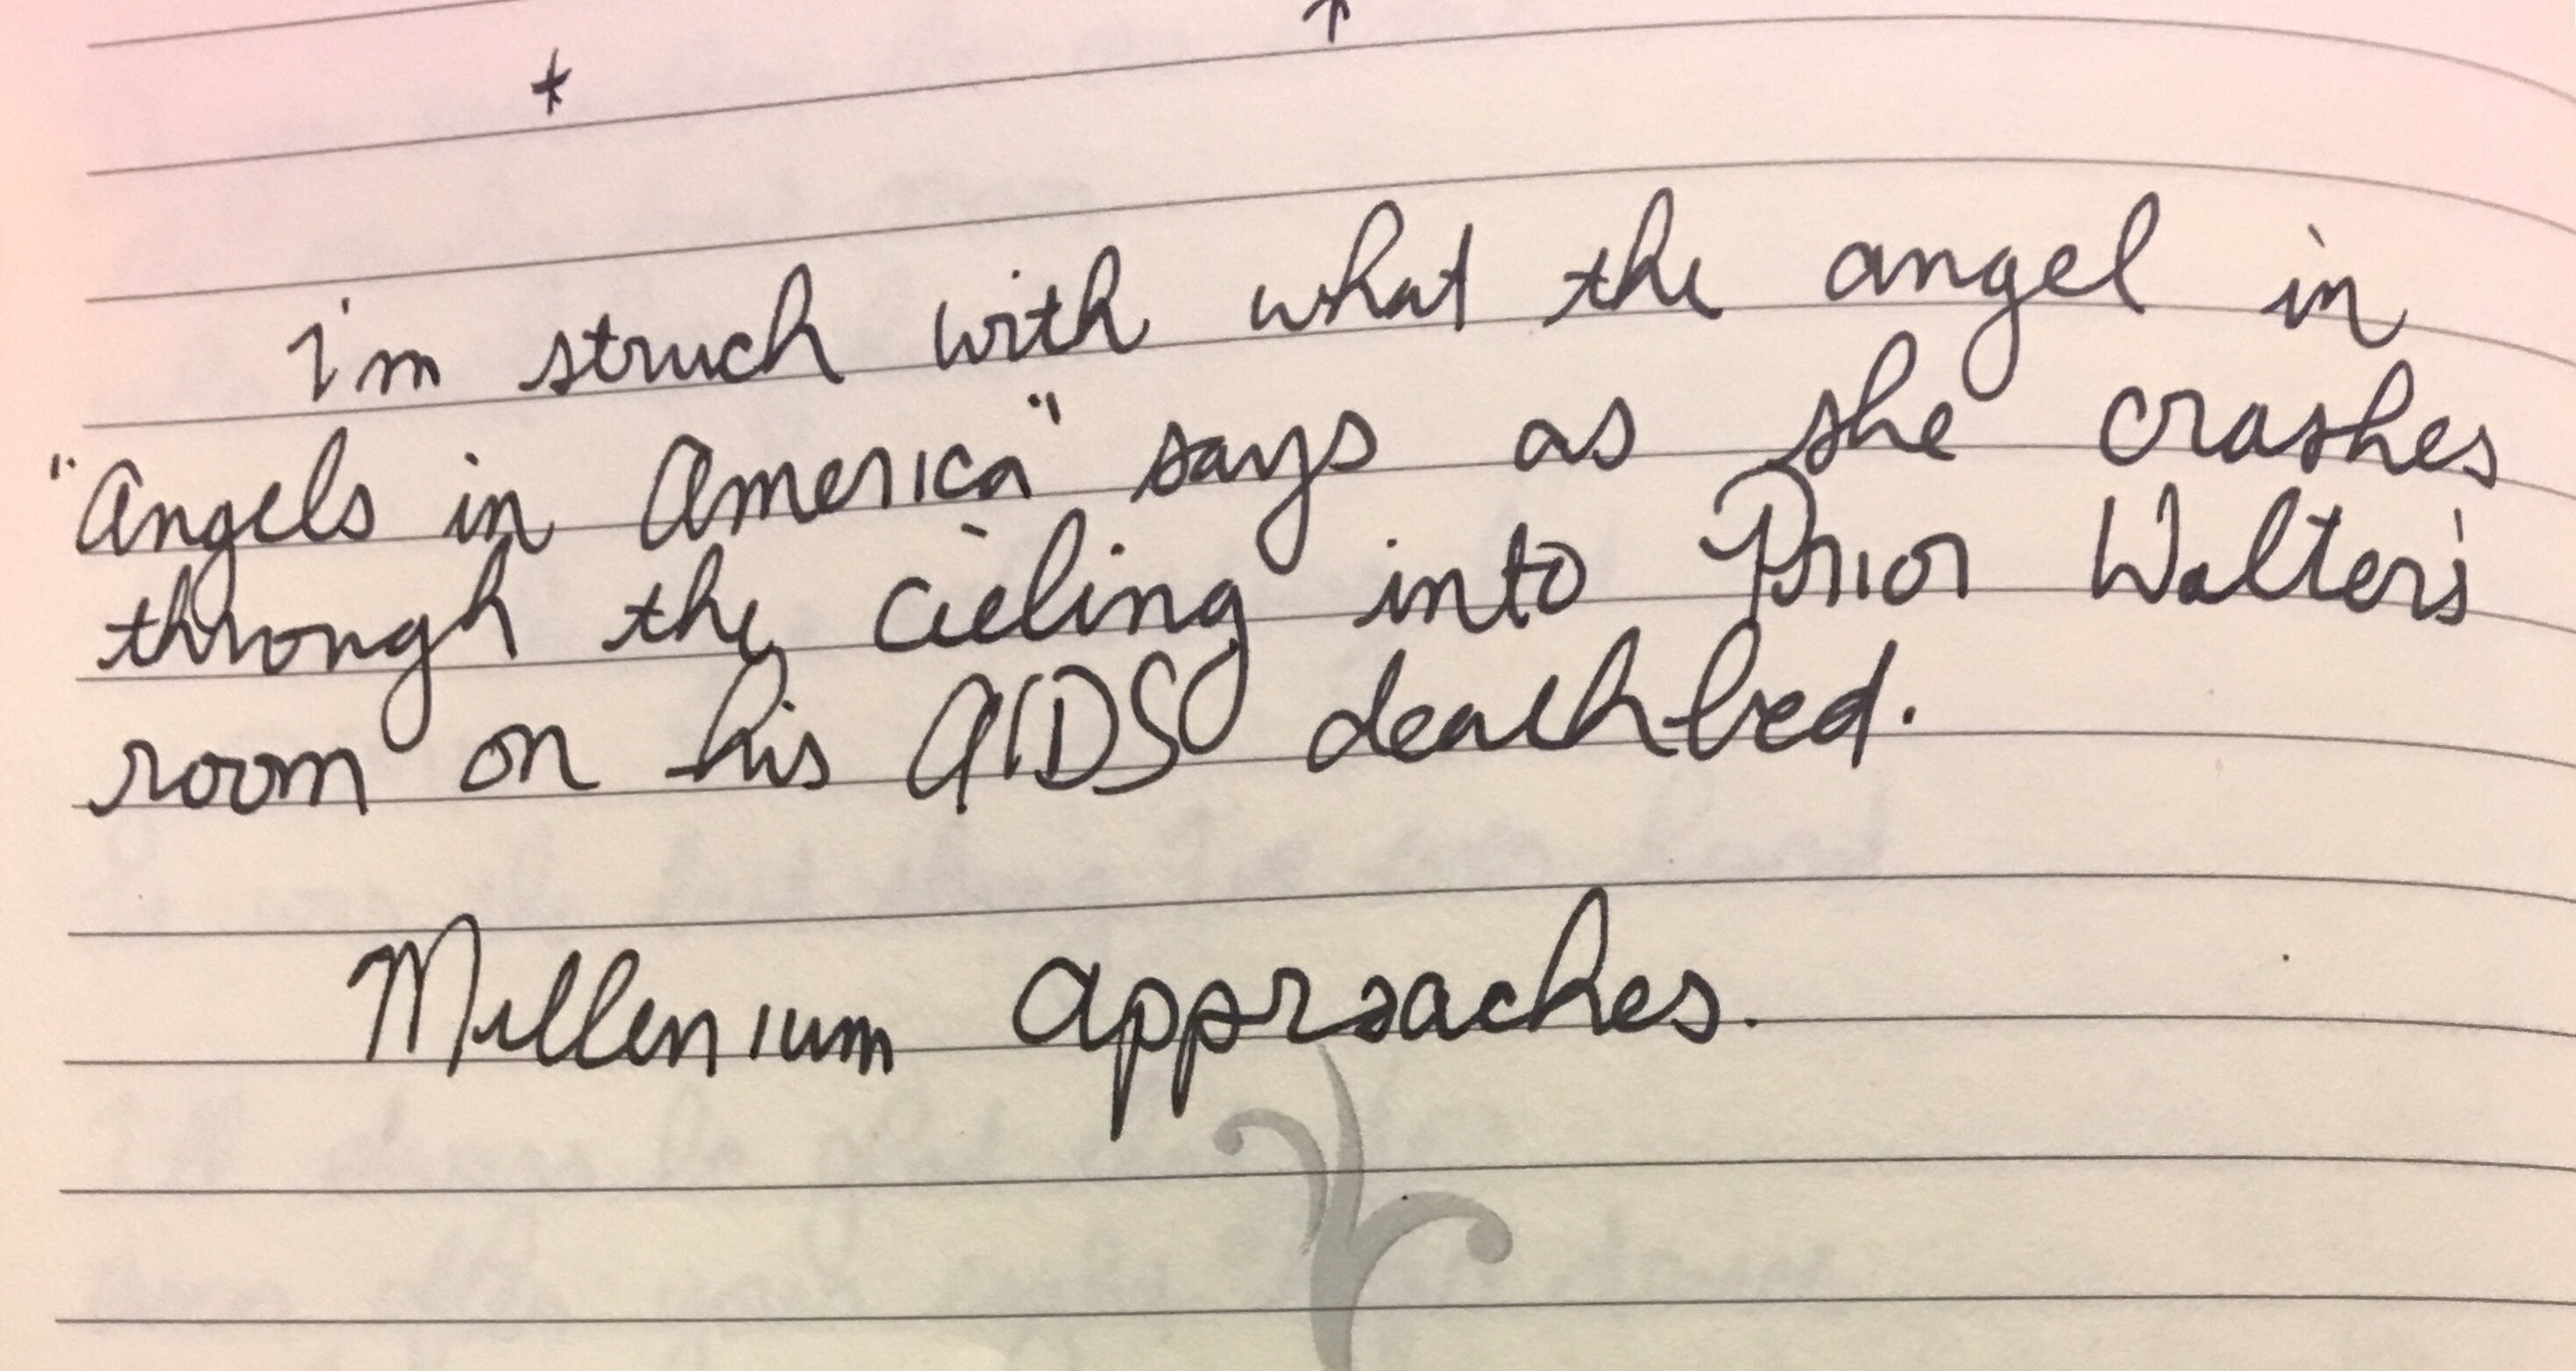 i'm struck with what the angel in
"Angels in America" says as she crashes
through the cieling into Prior Walter's
room on his AIDS deathbed.
Millenium approaches.